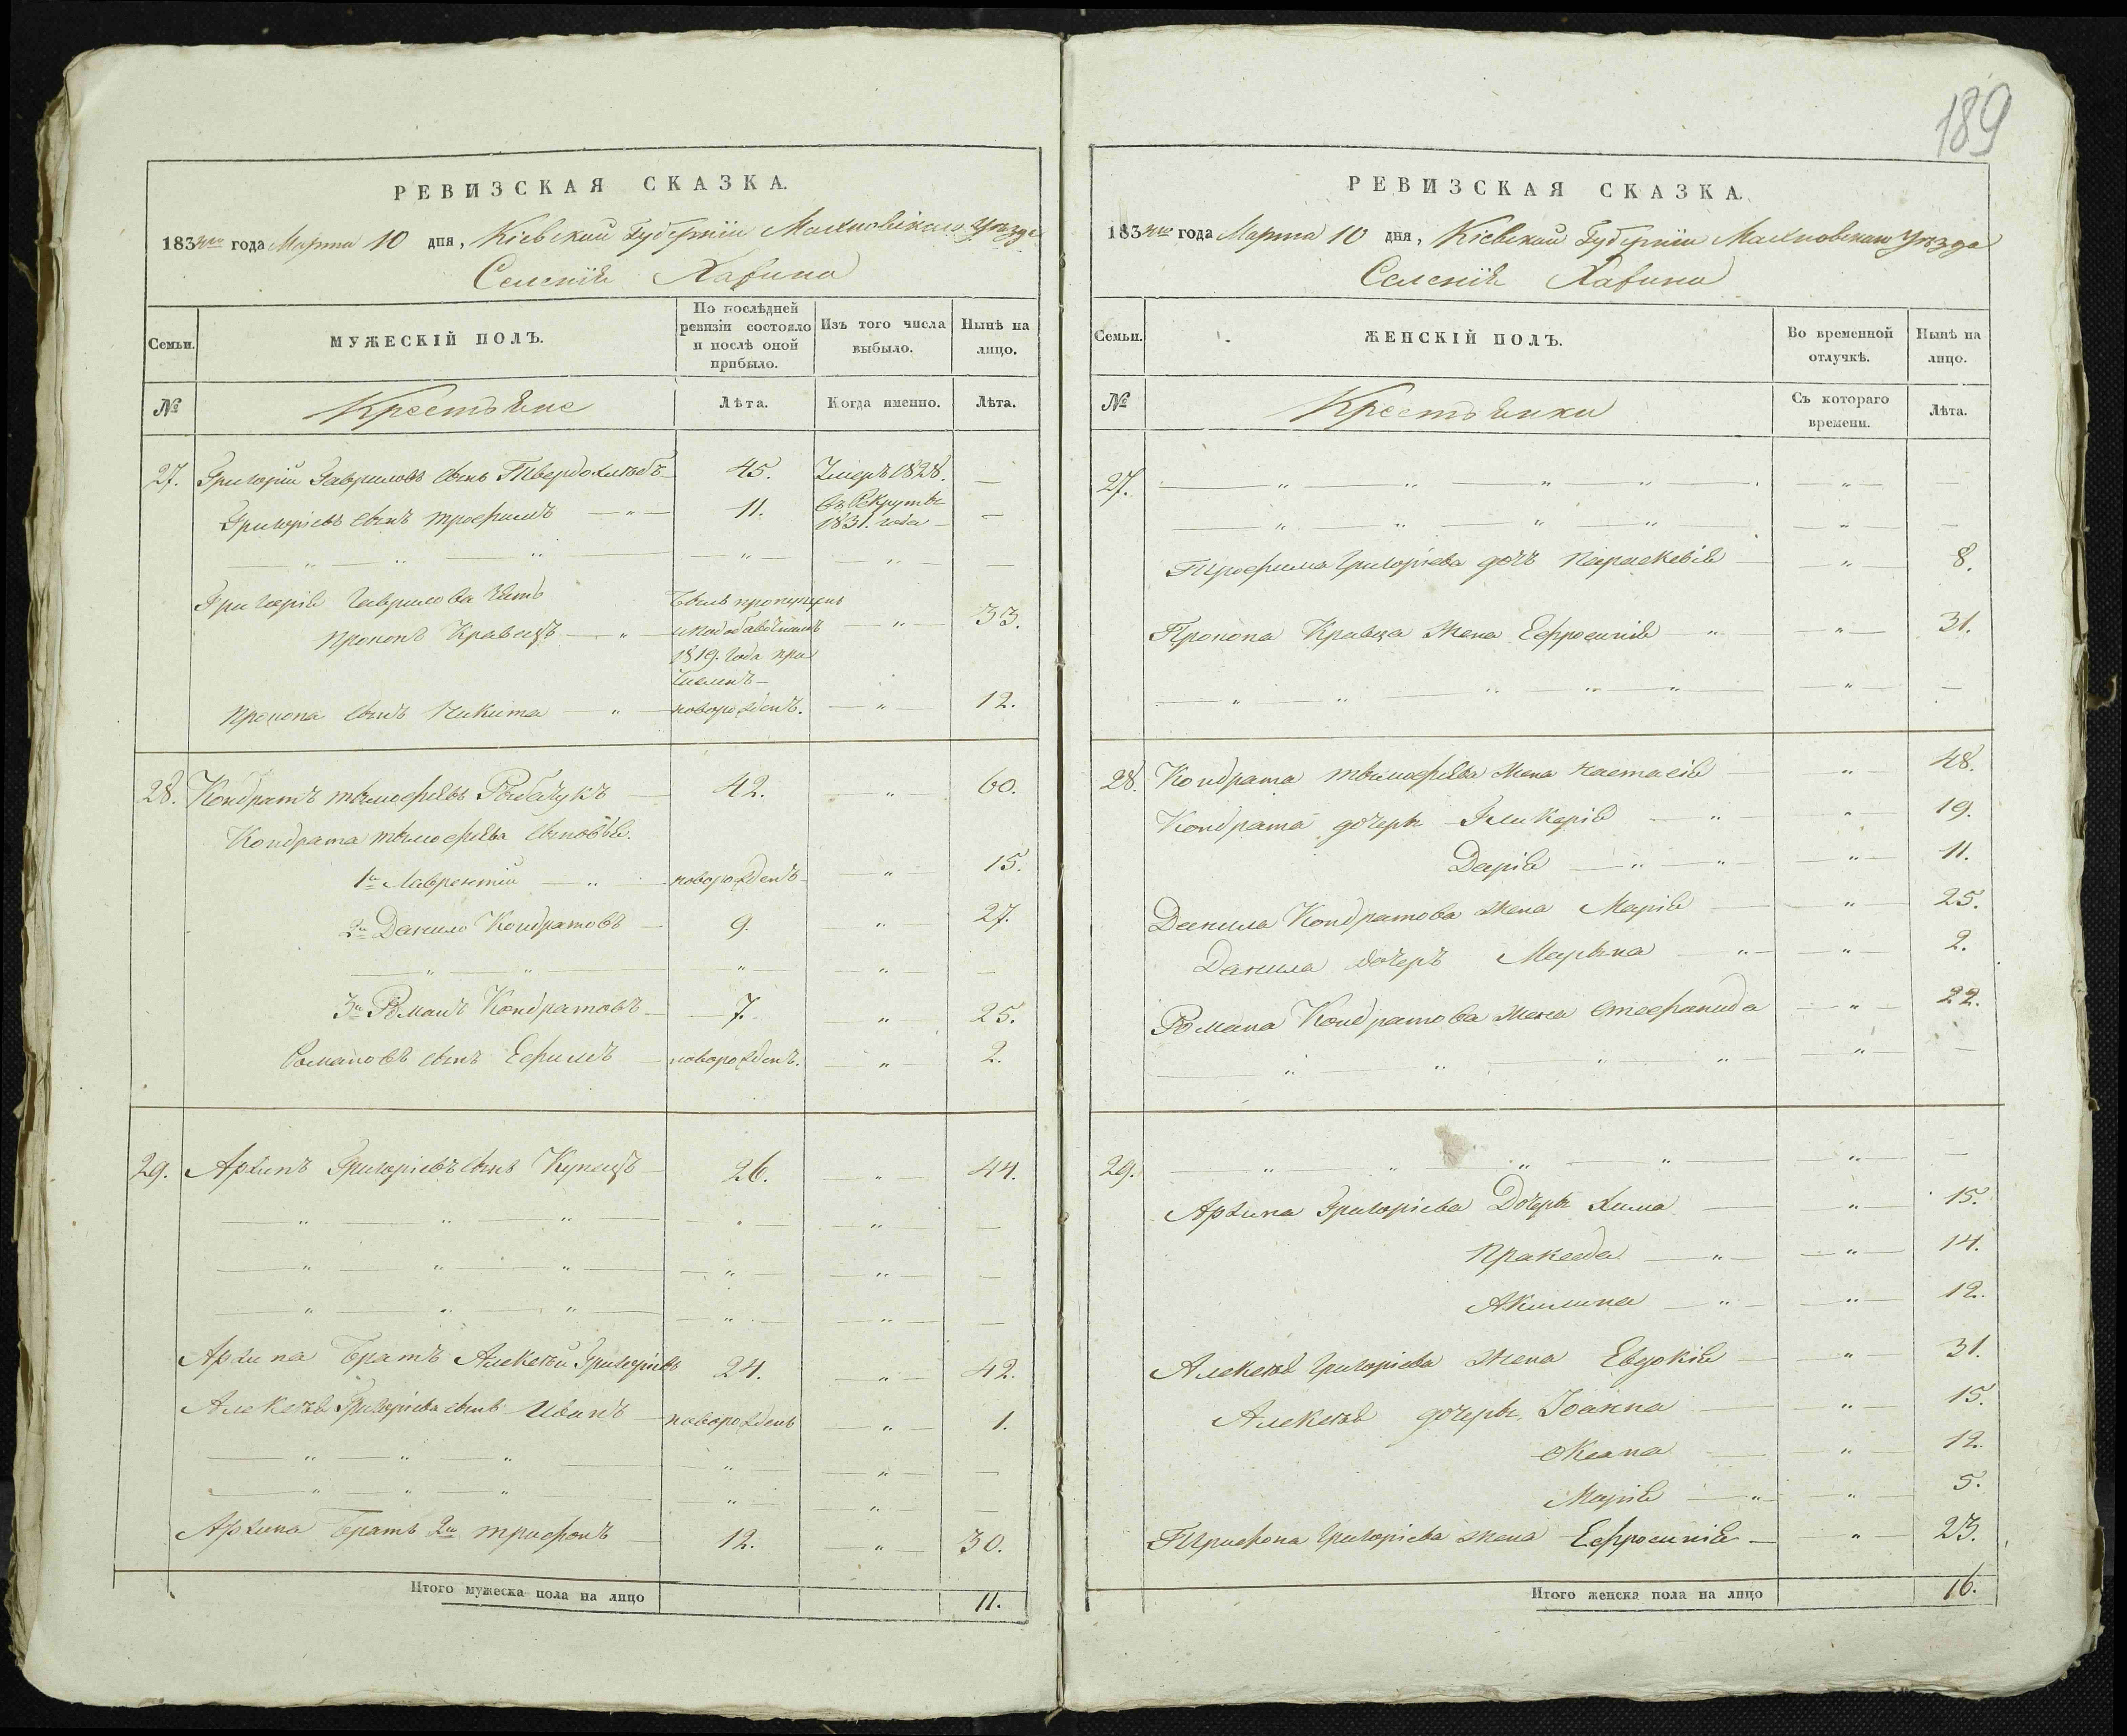 189
РЕВИЗСКАЯ СКАЗКА.
1834го года Марта 10 дня, Кіевской Губерніи Махновскаго Уѣзда
Селенія Хавина
Семьи.
МУЖЕСКІЙ ПОЛЪ.
По послѣдней
ревизіи состояло
и послѣ оной
прибыло.
Изъ того числа
выбыло.
Нынѣ на
лицо.
№
Крестьяне
Лѣта.
Когда именно.
Лѣта.
27. Григорій Гавриловъ сынъ Твердохлѣбъ 45. Умеръ 1828. —
Григоріевъ сынъ Трофимъ — „ — 11. Въ Рекруты
1831. года — —
— „ — „ — „ — — „ — — „ — —
Григорія Гаврилова Зять
Прокопъ Кравецъ — „ — Былъ пропущенъ
и по добавочнымъ — „ — 33.
1819. года при
численъ —
Прокопа сынъ Никита — „ — новорожденъ. — „ — 12.
28. Кондратъ Тымофѣевъ Рыбачукъ — 42. — „ — 60.
Кондрата Тымофѣева сыновья.
1й Лаврентій — „ — новорожденъ — „ — 15.
2й Данило Кондратовъ — 9. „ — 27.
— „ — „ — „ „ —
3й Романъ Кондратовъ — 7. „ 25.
Романовъ сынъ Ефимъ — новорожденъ. — „ — 2.
29. Архипъ Григоріевъ сынъ Купецъ — 26. — „ — 44.
— „ — „ — „ — „ — „ — —
— „ — „ — „ — — „ — — „ — —
— „ — „ — „ — — „ — — „ — —
Архипа братъ Алексѣй Григоріевъ 24. — „ — 42.
Алексѣя Григоріева сынъ Иванъ — новорожденъ — „ — 1.
— „ — „ — „ — — „ — — „ — —
— „ — „ — „ — — „ — — „ — —
Архипа братъ 2й Трифонъ — 12. — „ — 30.
Итого мужеска пола на лицо 11.
РЕВИЗСКАЯ СКАЗКА.
1834го года Марта 10 дня, Кіевской Губерніи Махновскаго Уѣзда
Селенія Хавина
Семьи.
ЖЕНСКІЙ ПОЛЪ.
Во временной
отлучкѣ.
Нынѣ на
лицо.
№
Крестьянки
Съ котораго
времени.
Лѣта.
27. — „ — „ — „ — „ — — „ — —
— „ — „ — „ — „ — — „ — —
Трофима Григорьева дочь Параскевія — „ — 8.
Прокопа Кравца жена Ефросинія — „ — „ — 31.
— „ — „ — „ — „ — „ — — „ — —
28. Кондрата Тымофѣева жена Настасія — „ — 48.
Кондрата дочеры Гликерія — „ — „ — 19.
Дарія — „ — „ — — „ — 11.
Данила Кондратова жена Марія — — „ — 25.
Данила дочеръ Марына — „ — — „ — 2.
Романа Кондратова жена Стефанида — „ — 22.
— „ — „ — „ — „ — — „ — —
29. — „ — „ — „ — „ — — „ — —
Архипа Григоріева Дочеры Хима — — „ — 15.
Пракседа — „ — — „ — 14.
Акилина — „ — — „ — 12.
Алексѣя Григоріева жена Евдокія — — „ — 31.
Алексѣя дочеры, Іоанна — — „ — 15.
Оксана — — „ — 12.
Марія — „ — — „ — 5.
Трифона Григоріева жена Ефросинія — — „ — 23.
Итого женска пола на лицо 16.